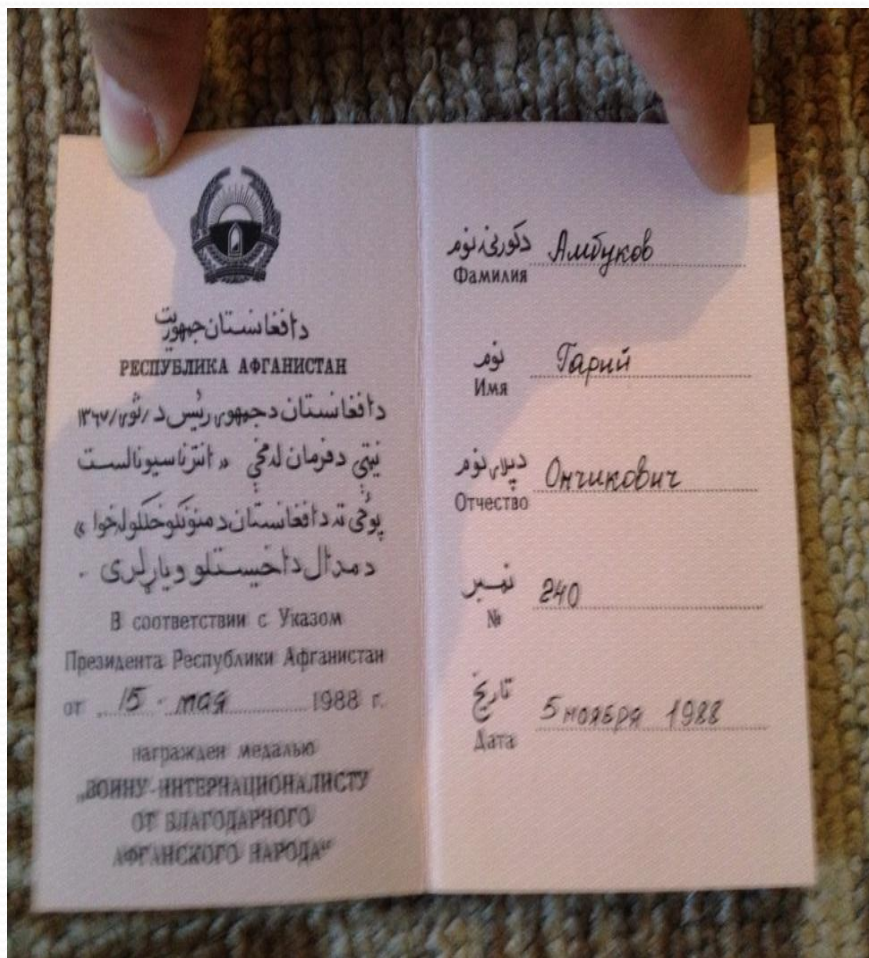 د افغانستان جمهوریت
РЕСПУБЛИКА АФГАНИСТАН
د افغانستان د جمهوری رئیس د /ثور/ ۱۳۶۷
نیټې د فرمان له مخې « انترناسیونالست
پوځی ته د افغانستان د منونکو خلکو له خوا »
د مدال د اخیستلو ویاړ لری .
В соответствии с Указом
Президента Республики Афганистан
от 15 - мая 1988 г.
награжден медалью
„ВОИНУ-ИНТЕРНАЦИОНАЛИСТУ
ОТ БЛАГОДАРНОГО
АФГАНСКОГО НАРОДА“
د کورنۍ نوم Амбуков
Фамилия
نوم Гарий
Имя
د پلار نوم Ончикович
Отчество
نمبر 240
№
تاریخ 5 ноября 1988
Дата